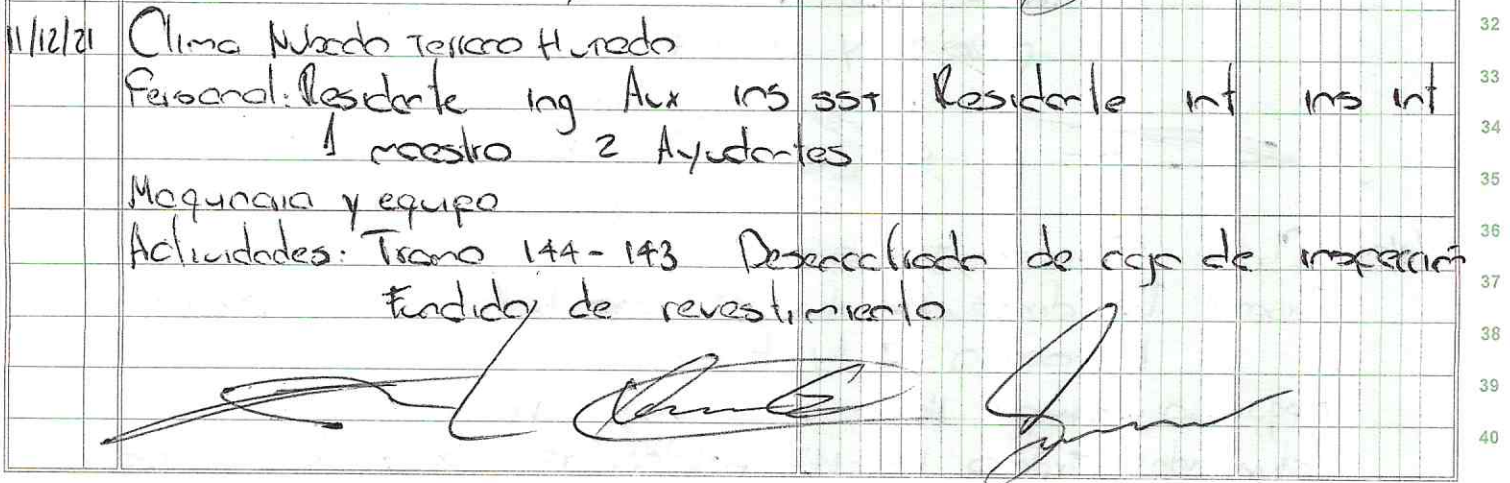 11/12/21 Clima Nublado Terreno Humedo
Personal: Residente ing Aux ins sst Residente int ins int
1 maestro 2 Ayudantes
Maquinaria y equipo
Actividades: Tramo 144-143 Desencofrado de caja de inspección
Fundida de revestimiento
32
33
34
35
36
37
38
39
40